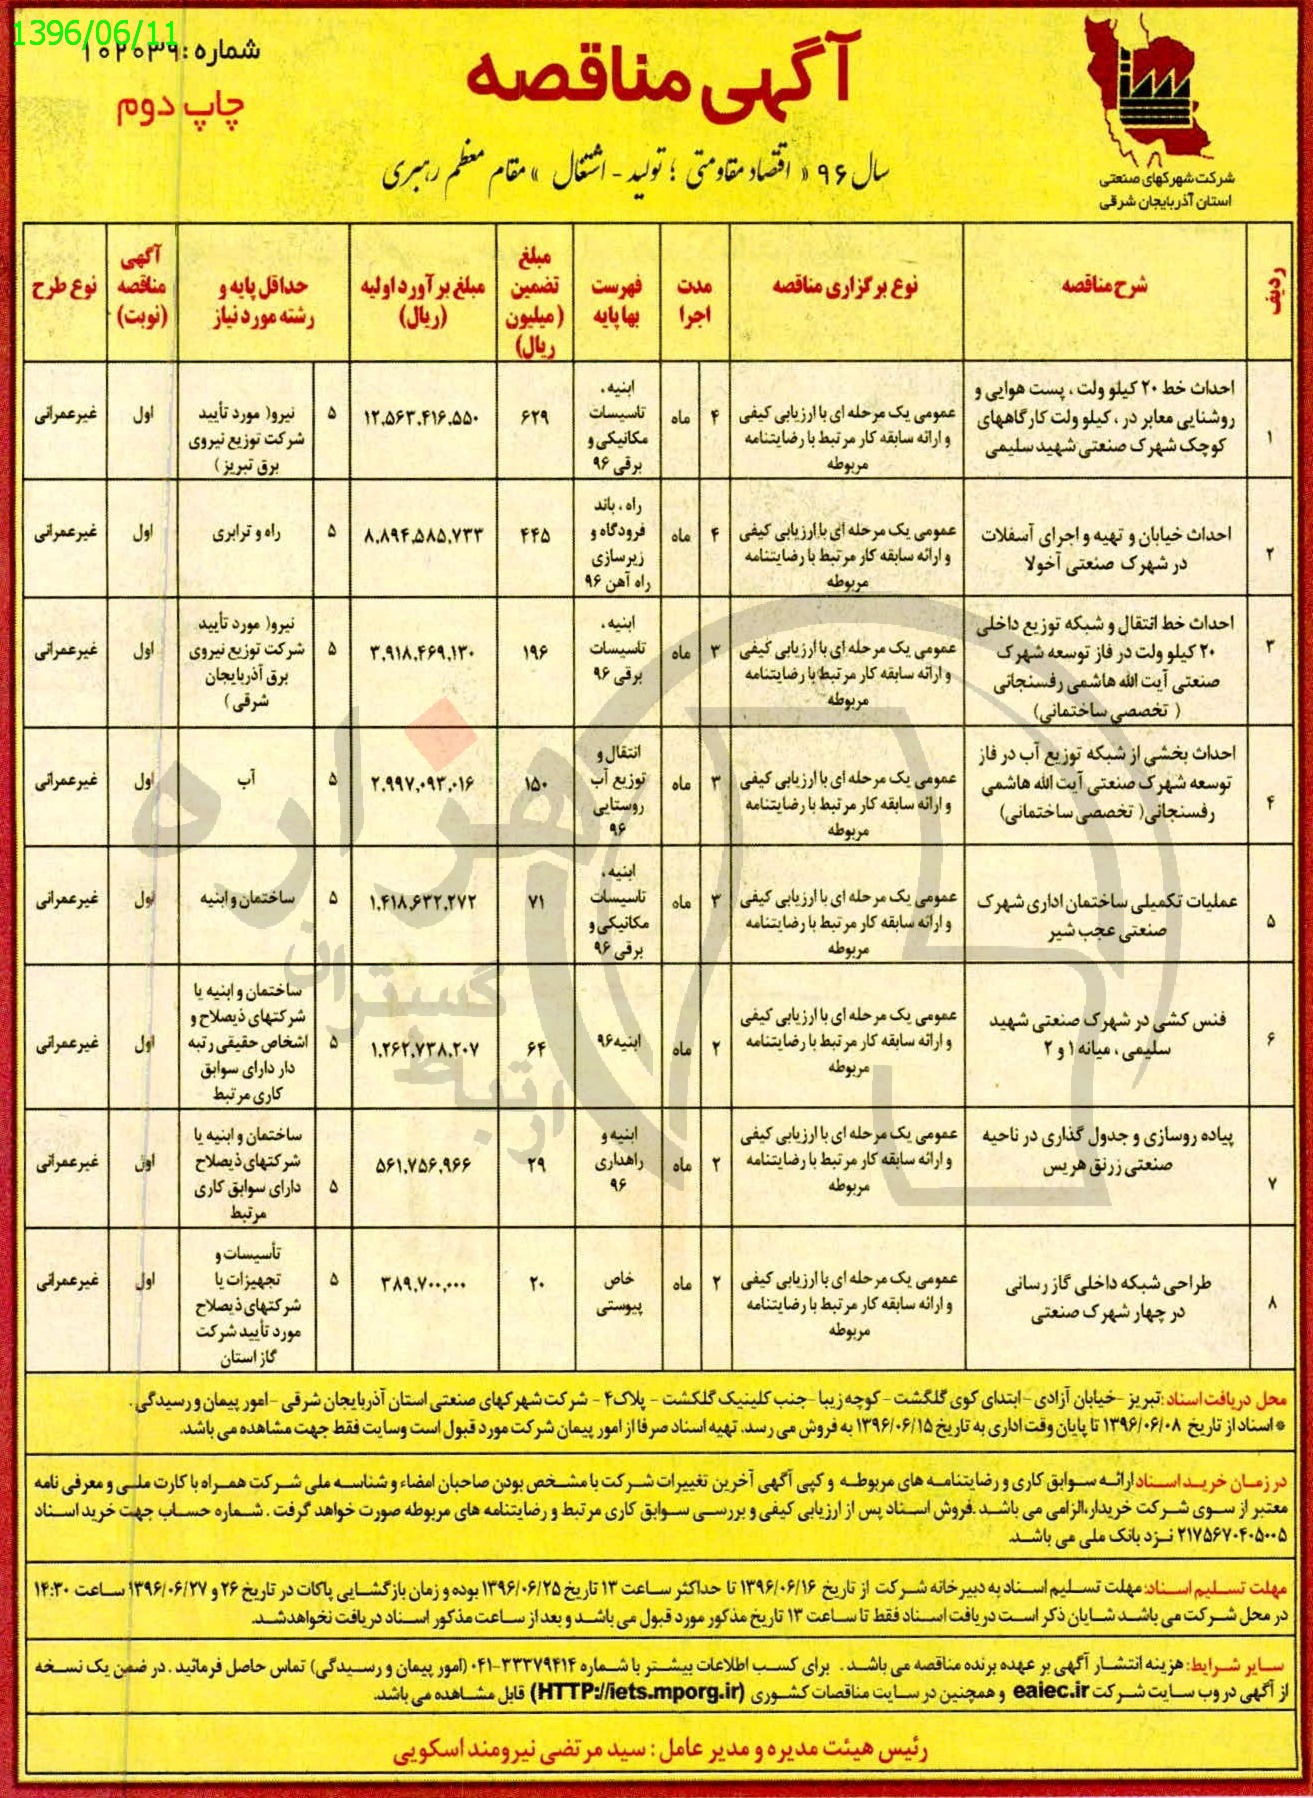 1396/06/11
شماره : ۱۰۲۰۳۹
چاپ دوم
آگهی مناقصه
سال ۹۶ « اقتصاد مقاومتی ؛ تولید - اشتغال » مقام معظم رهبری
شرکت شهرکهای صنعتی
استان آذربایجان شرقی
ردیف
شرح مناقصه
نوع برگزاری مناقصه
مدت
اجرا
فهرست
بها پایه
مبلغ
تضمین
(میلیون
ریال)
مبلغ برآورد اولیه
(ریال)
حداقل پایه و
رشته مورد نیاز
آگهی
مناقصه
(نوبت)
نوع طرح
۱
احداث خط ۲۰ کیلو ولت ، پست هوایی و
روشنایی معابر در ، کیلو ولت کارگاههای
کوچک شهرک صنعتی شهید سلیمی
عمومی یک مرحله ای با ارزیابی کیفی
و ارائه سابقه کار مرتبط با رضایتنامه
مربوطه
۴ ماه
ابنیه ،
تاسیسات
مکانیکی و
برقی ۹۶
۶۲۹
۱۲،۵۶۳،۴۱۶،۵۵۰
۵
نیرو( مورد تأیید
شرکت توزیع نیروی
برق تبریز )
اول
غیرعمرانی
۲
احداث خیابان و تهیه و اجرای آسفلات
در شهرک صنعتی آخولا
عمومی یک مرحله ای با ارزیابی کیفی
و ارائه سابقه کار مرتبط با رضایتنامه
مربوطه
۴ ماه
راه ، باند
فرودگاه و
زیرسازی
راه آهن ۹۶
۴۴۵
۸،۸۹۴،۵۸۵،۷۳۳
۵
راه و ترابری
اول
غیرعمرانی
۳
احداث خط انتقال و شبکه توزیع داخلی
۲۰ کیلو ولت در فاز توسعه شهرک
صنعتی آیت الله هاشمی رفسنجانی
( تخصصی ساختمانی)
عمومی یک مرحله ای با ارزیابی کیفی
و ارائه سابقه کار مرتبط با رضایتنامه
مربوطه
۳ ماه
ابنیه ،
تاسیسات
برقی ۹۶
۱۹۶
۳،۹۱۸،۴۶۹،۱۳۰
۵
نیرو( مورد تأیید
شرکت توزیع نیروی
برق آذربایجان
شرقی )
اول
غیرعمرانی
۴
احداث بخشی از شبکه توزیع آب در فاز
توسعه شهرک صنعتی آیت الله هاشمی
رفسنجانی( تخصصی ساختمانی)
عمومی یک مرحله ای با ارزیابی کیفی
و ارائه سابقه کار مرتبط با رضایتنامه
مربوطه
۳ ماه
انتقال و
توزیع آب
روستایی
۹۶
۱۵۰
۲،۹۹۷،۰۹۳،۰۱۶
۵
آب
اول
غیرعمرانی
۵
عملیات تکمیلی ساختمان اداری شهرک
صنعتی عجب شیر
عمومی یک مرحله ای با ارزیابی کیفی
و ارائه سابقه کار مرتبط با رضایتنامه
مربوطه
۳ ماه
ابنیه ،
تاسیسات
مکانیکی و
برقی ۹۶
۷۱
۱،۴۱۸،۶۳۲،۲۷۲
۵
ساختمان و ابنیه
اول
غیرعمرانی
۶
فنس کشی در شهرک صنعتی شهید
سلیمی ، میانه ۱ و ۲
عمومی یک مرحله ای با ارزیابی کیفی
و ارائه سابقه کار مرتبط با رضایتنامه
مربوطه
۲ ماه
ابنیه ۹۶
۶۴
۱،۲۶۲،۷۳۸،۲۰۷
۵
ساختمان و ابنیه یا
شرکتهای ذیصلاح و
اشخاص حقیقی رتبه
دار دارای سوابق
کاری مرتبط
اول
غیرعمرانی
۷
پیاده روسازی و جدول گذاری در ناحیه
صنعتی زرنق هریس
عمومی یک مرحله ای با ارزیابی کیفی
و ارائه سابقه کار مرتبط با رضایتنامه
مربوطه
۲ ماه
ابنیه و
راهداری
۹۶
۲۹
۵۶۱،۷۵۶،۹۶۶
۵
ساختمان و ابنیه یا
شرکتهای ذیصلاح
دارای سوابق کاری
مرتبط
اول
غیرعمرانی
۸
طراحی شبکه داخلی گاز رسانی
در چهار شهرک صنعتی
عمومی یک مرحله ای با ارزیابی کیفی
و ارائه سابقه کار مرتبط با رضایتنامه
مربوطه
۲ ماه
خاص
پیوستی
۲۰
۳۸۹،۷۰۰،۰۰۰
۵
تأسیسات و
تجهیزات یا
شرکتهای ذیصلاح
مورد تأیید شرکت
گاز استان
اول
غیرعمرانی
هزاره
گستران
ارتباط
محل دریافت اسناد :تبریز -خیابان آزادی - ابتدای کوی گلگشت - کوچه زیبا -جنب کلینیک گلگشت - پلاک۴ - شرکت شهرکهای صنعتی استان آذربایجان شرقی - امور پیمان و رسیدگی .
* اسناد از تاریخ ۱۳۹۶/۰۶/۰۸ تا پایان وقت اداری به تاریخ ۱۳۹۶/۰۶/۱۵ به فروش می رسد. تهیه اسناد صرفا از امور پیمان شرکت مورد قبول است وسایت فقط جهت مشاهده می باشد.
در زمان خرید اسناد ارائه سوابق کاری و رضایتنامه های مربوطه و کپی آگهی آخرین تغییرات شرکت با مشخص بودن صاحبان امضاء و شناسه ملی شرکت همراه با کارت ملی و معرفی نامه
معتبر از سوی شرکت خریدار،الزامی می باشد .فروش اسناد پس از ارزیابی کیفی و بررسی سوابق کاری مرتبط و رضایتنامه های مربوطه صورت خواهد گرفت . شماره حساب جهت خرید اسناد
۲۱۷۵۶۷۰۴۰۵۰۰۵ نزد بانک ملی می باشد.
مهلت تسلیم اسناد: مهلت تسلیم اسناد به دبیرخانه شرکت از تاریخ ۱۳۹۶/۰۶/۱۶ تا حداکثر ساعت ۱۳ تاریخ ۱۳۹۶/۰۶/۲۵ بوده و زمان بازگشایی پاکات در تاریخ ۲۶ و ۱۳۹۶/۰۶/۲۷ ساعت ۱۴:۳۰
در محل شرکت می باشد شایان ذکر است دریافت اسناد فقط تا ساعت ۱۳ تاریخ مذکور مورد قبول می باشد و بعد از ساعت مذکور اسناد دریافت نخواهد شد.
سایر شرایط: هزینه انتشار آگهی بر عهده برنده مناقصه می باشد . برای کسب اطلاعات بیشتر با شماره ۳۳۳۷۹۴۱۴-۰۴۱ (امور پیمان و رسیدگی) تماس حاصل فرمائید . در ضمن یک نسخه
از آگهی در وب سایت شرکت eaiec.ir و همچنین در سایت مناقصات کشوری (HTTP://iets.mporg.ir) قابل مشاهده می باشد.
رئیس هیئت مدیره و مدیر عامل : سید مرتضی نیرومند اسکویی